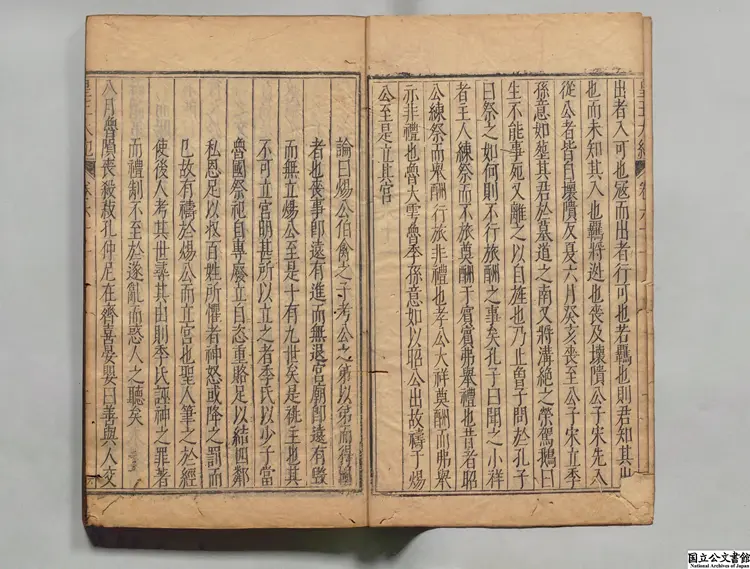 出者入可也寇而出者行可也若羈也則君知其出
也而未知其入也羈將逃也喪及壞隤公子宋先入
從公者皆自壞隤反夏六月癸亥喪至公子宋立季
孫意如塟其君於墓道之南又將溝絕之榮駕鵝曰
生不能事死又離之以自旌也乃止曾子問於孔子
曰祭之如何則不行旅酬之事矣孔子曰聞之小祥
者主人練祭而不旅奠酬于賓賓弗舉禮也昔者昭
公練祭而舉酬行旅非禮也孝公大祥奠酬而弗舉
亦非禮也魯大雩魯季孫意如以昭公出故禱于煬
公至是立其宮
論曰煬公伯禽之子考公之弟以弟而得國
者也喪事即遠有進而無退宮廟即遠有毀
而無立煬公至是十有九世矣是祧主也其
不可立宮明甚所以立之者季氏以少子當
魯國祭祀自專廢立自恣重賂足以結四鄰
私恩足以收百姓所懼者神怒或降之罰而
已故有禱於煬公而立宮也聖人筆之於經
使後人考其世尋其出則季氏誣神之罪著
而禮制不至於遂亂而惑人之聽矣
八月魯隕霜殺菽孔仲尼在齊喜晏嬰曰善與人交
皇王大紀
國立公文書館
National Archives of Japan